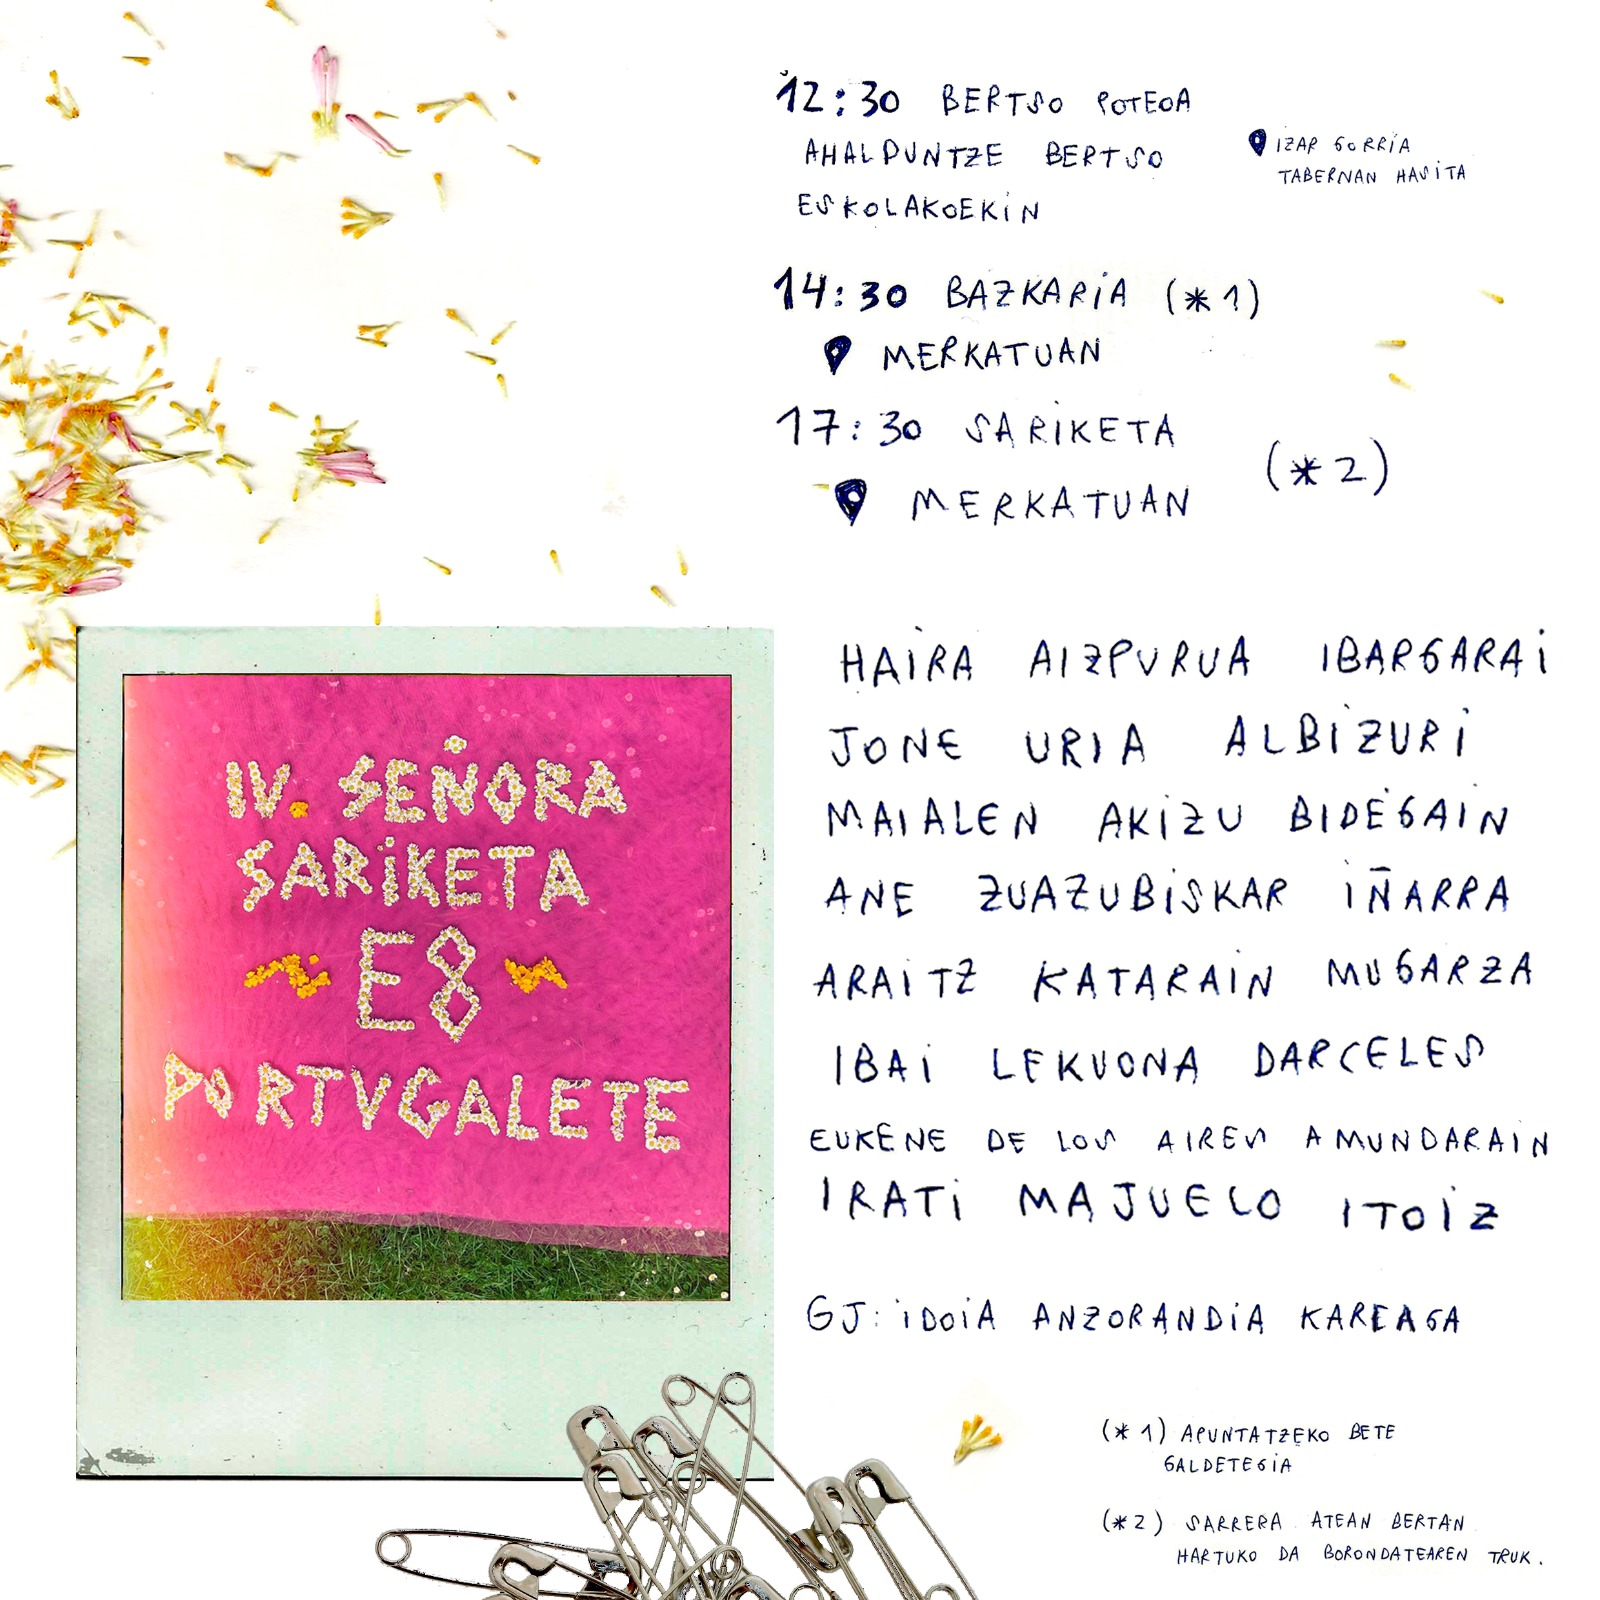 12:30 BERTSO POTEOA
AHALDUNTZE BERTSO
ESKOLAKOEKIN
IZAR GORRIA
TABERNAN HASITA
14:30 BAZKARIA (*1)
MERKATUAN
17:30 SARIKETA
MERKATUAN
(*2)
IV. SEÑORA
SARIKETA
E8
PORTUGALETE
HAIRA AIZPURUA IBARGARAI
JONE URIA ALBIZURI
MAIALEN AKIZU BIDEGAIN
ANE ZUAZUBISKAR IÑARRA
ARAITZ KATARAIN MUGARZA
IBAI LEKUONA DARCELES
EUKENE DE LOS AIRES AMUNDARAIN
IRATI MAJUELO ITOIZ
GJ: IDOIA ANZORANDIA KAREAGA
(*1) APUNTATZEKO BETE
GALDETEGIA
(*2) SARRERA ATEAN BERTAN
HARTUKO DA BORONDATEAREN TRUK.